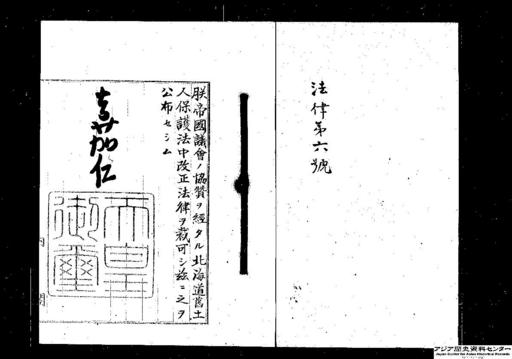 法律第六號
朕帝國議會ノ協贊ヲ經タル北海道舊土
人保護法中改正法律ヲ裁可シ茲ニ之ヲ
公布セシム
嘉仁
天皇
御璽
内
閣
アジア歴史資料センター
Japan Center for Asian Historical Records